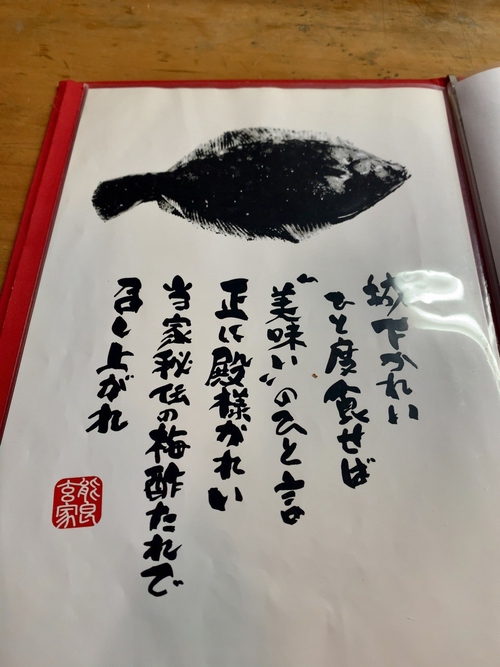 城下かれい
ひと度食せば
“美味い”のひと言
正に殿様かれい
当家秘伝の梅酢たれで
召し上がれ
能良
玄家